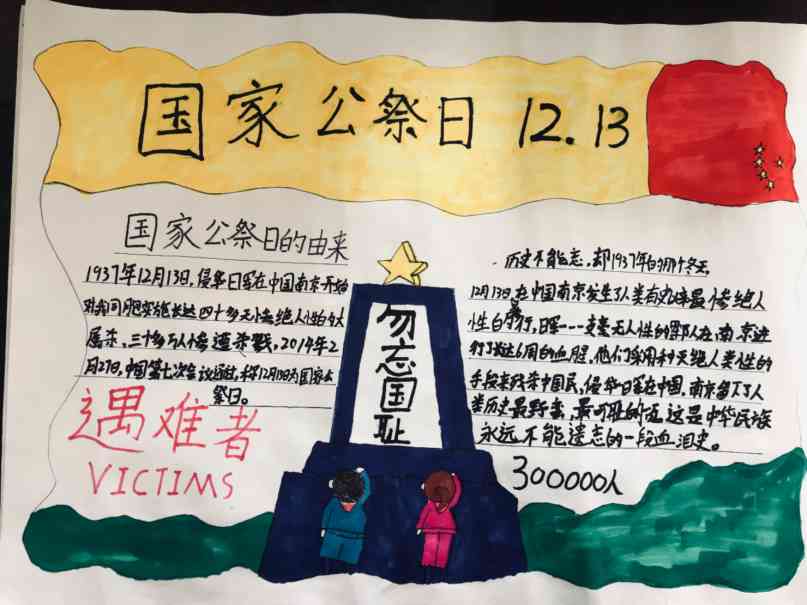 国家公祭日 12.13
国家公祭日的由来
1937年12月13日,侵华日军在中国南京开始
对我同胞实施长达四十多天惨绝人性的大
屠杀,三十多万人惨遭杀戮,2014年2
月27日,中国第七次会议通过,将12月13日为国家公
祭日。
遇难者
VICTIMS
勿忘国耻
历史不能忘,却1937年的那个冬天,
12月13日,在中国南京发生了人类有史以来最惨绝人
性的,日军---支毫无人性的部队在南京进
行了长达6周的血腥,他们采用种灭绝人类性的
手段来残杀中国民,侵华日军在中国,南京留下了人
类历史最野蛮,最可耻的,这是中华民族
永远不能遗忘的一段血泪史。
300000人